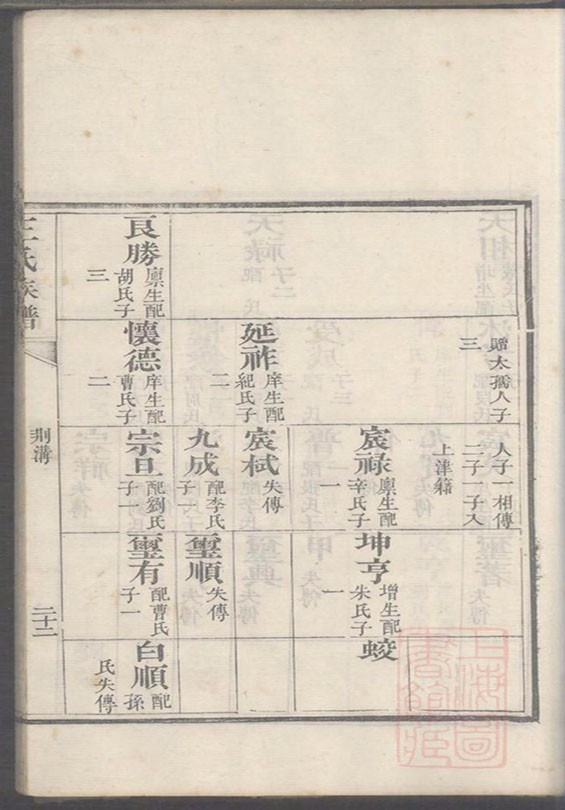 贈太孺人子
三
人子一相傳
二子一子入
上津籍
宸祿
廪生配
辛氏子
一
坤亨
增生配
朱氏子
一
蛟
延祚
庠生配
紀氏子
二
宸栻
失傳
九成
配李氏
子一
璽順
失傳
良勝
廪生配
胡氏子
三
懷德
庠生配
曹氏子
二
宗旦
配劉氏
子一
璽有
配曹氏
子一
白順
配孫
氏失傳
王氏族譜
荆溝
二十二
上海圖
書館藏